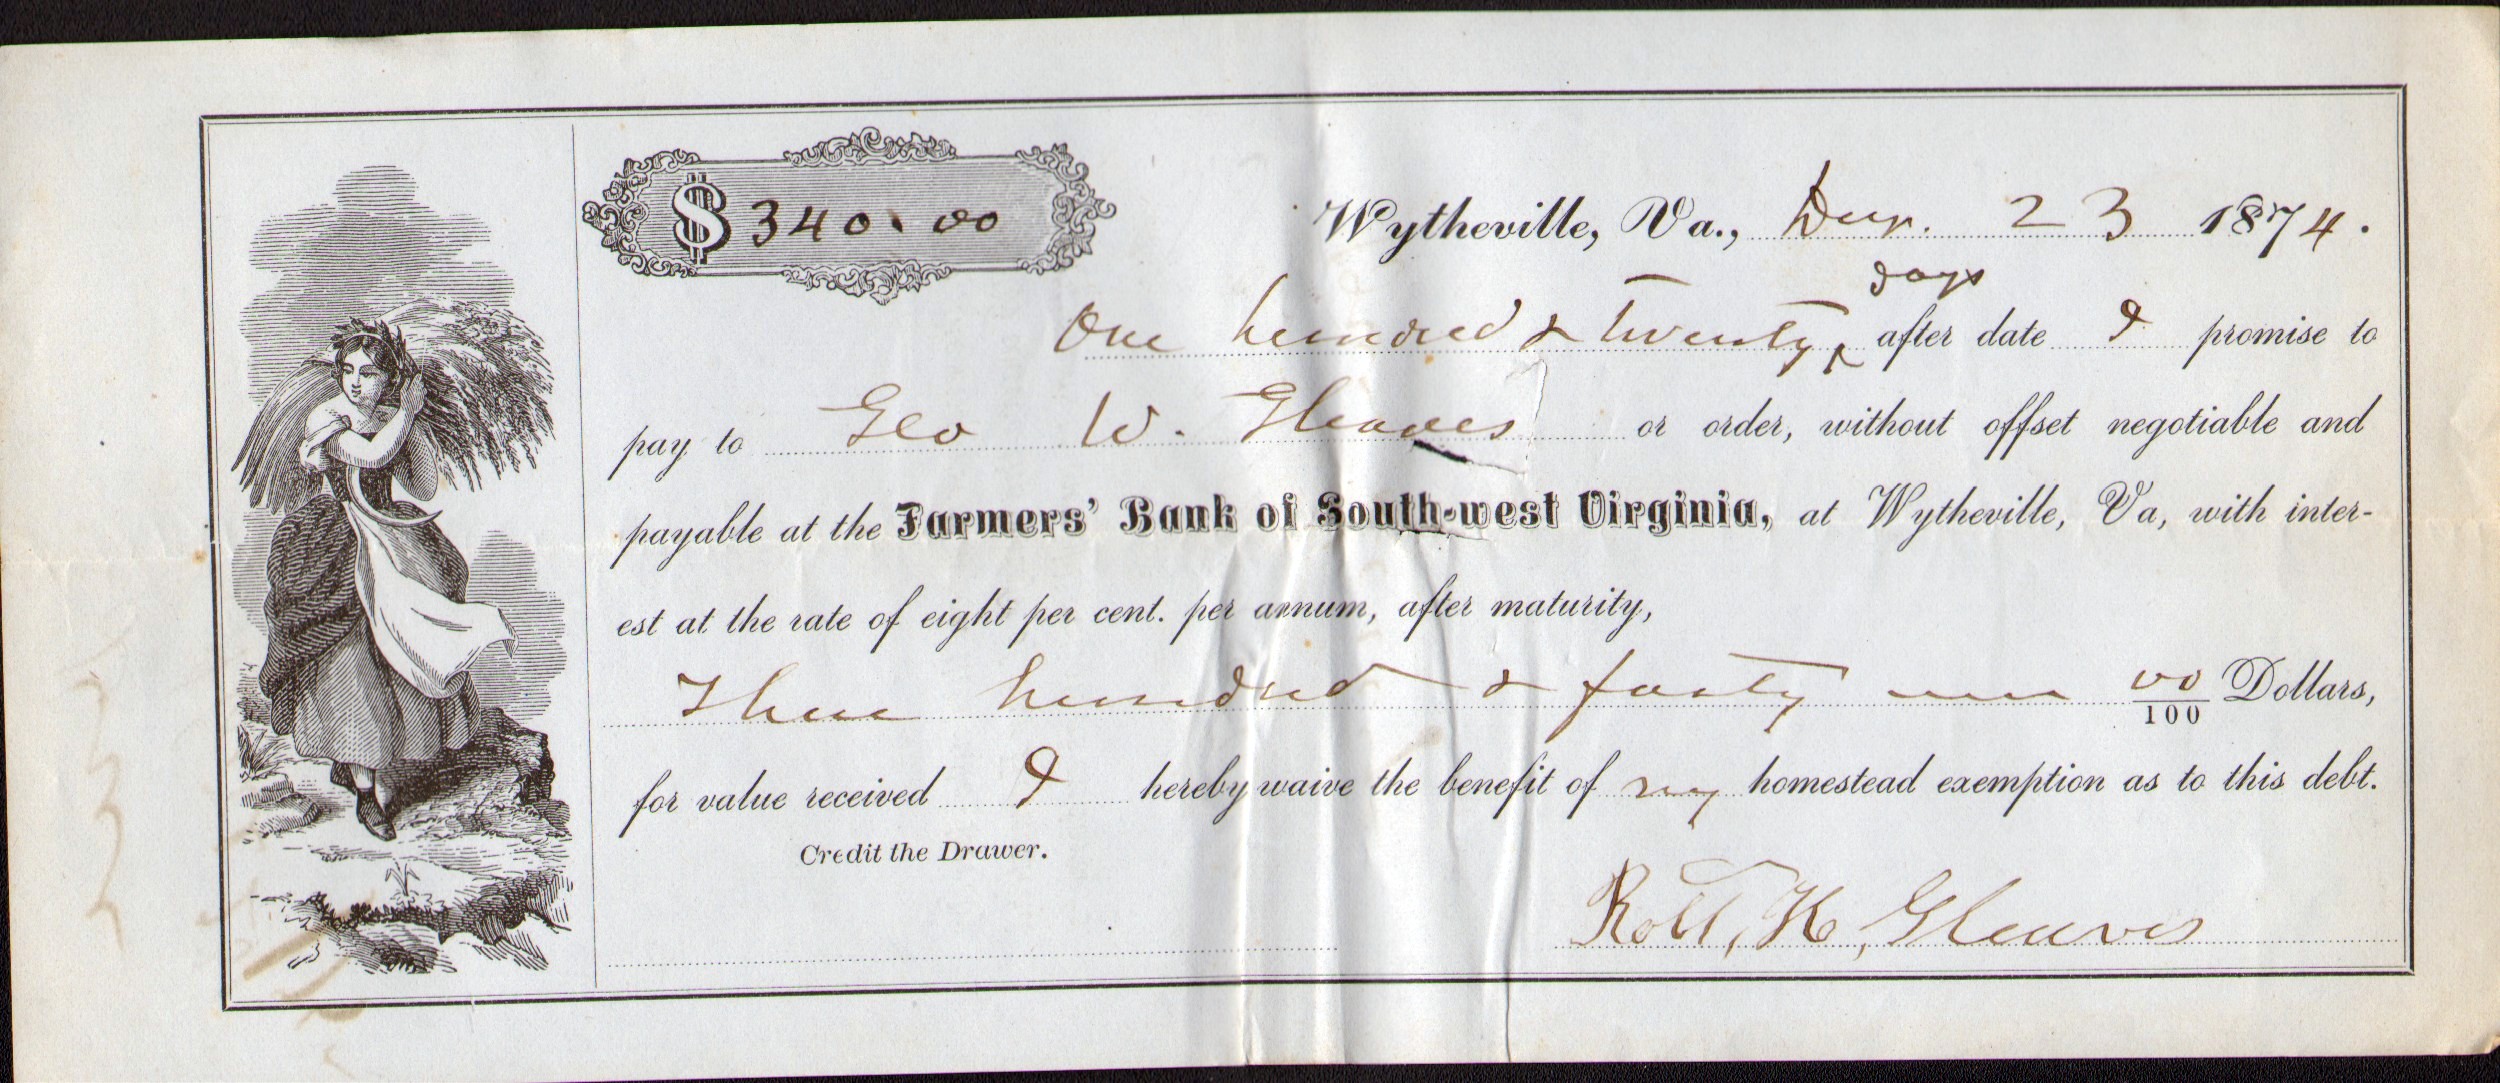 $ 340.00
Wytheville, Va., Decr. 23 1874.
days
One hundred & twenty ^ after date I promise to
pay to Geo W. Gleaves or order, without offset negotiable and
payable at the Farmers' Bank of South-west Virginia, at Wytheville, Va, with inter-
est at the rate of eight per cent. per annum, after maturity,
Three hundred & forty 00/100 Dollars,
for value received I hereby waive the benefit of my homestead exemption as to this debt.
Credit the Drawer.
Robt. H. Gleaves